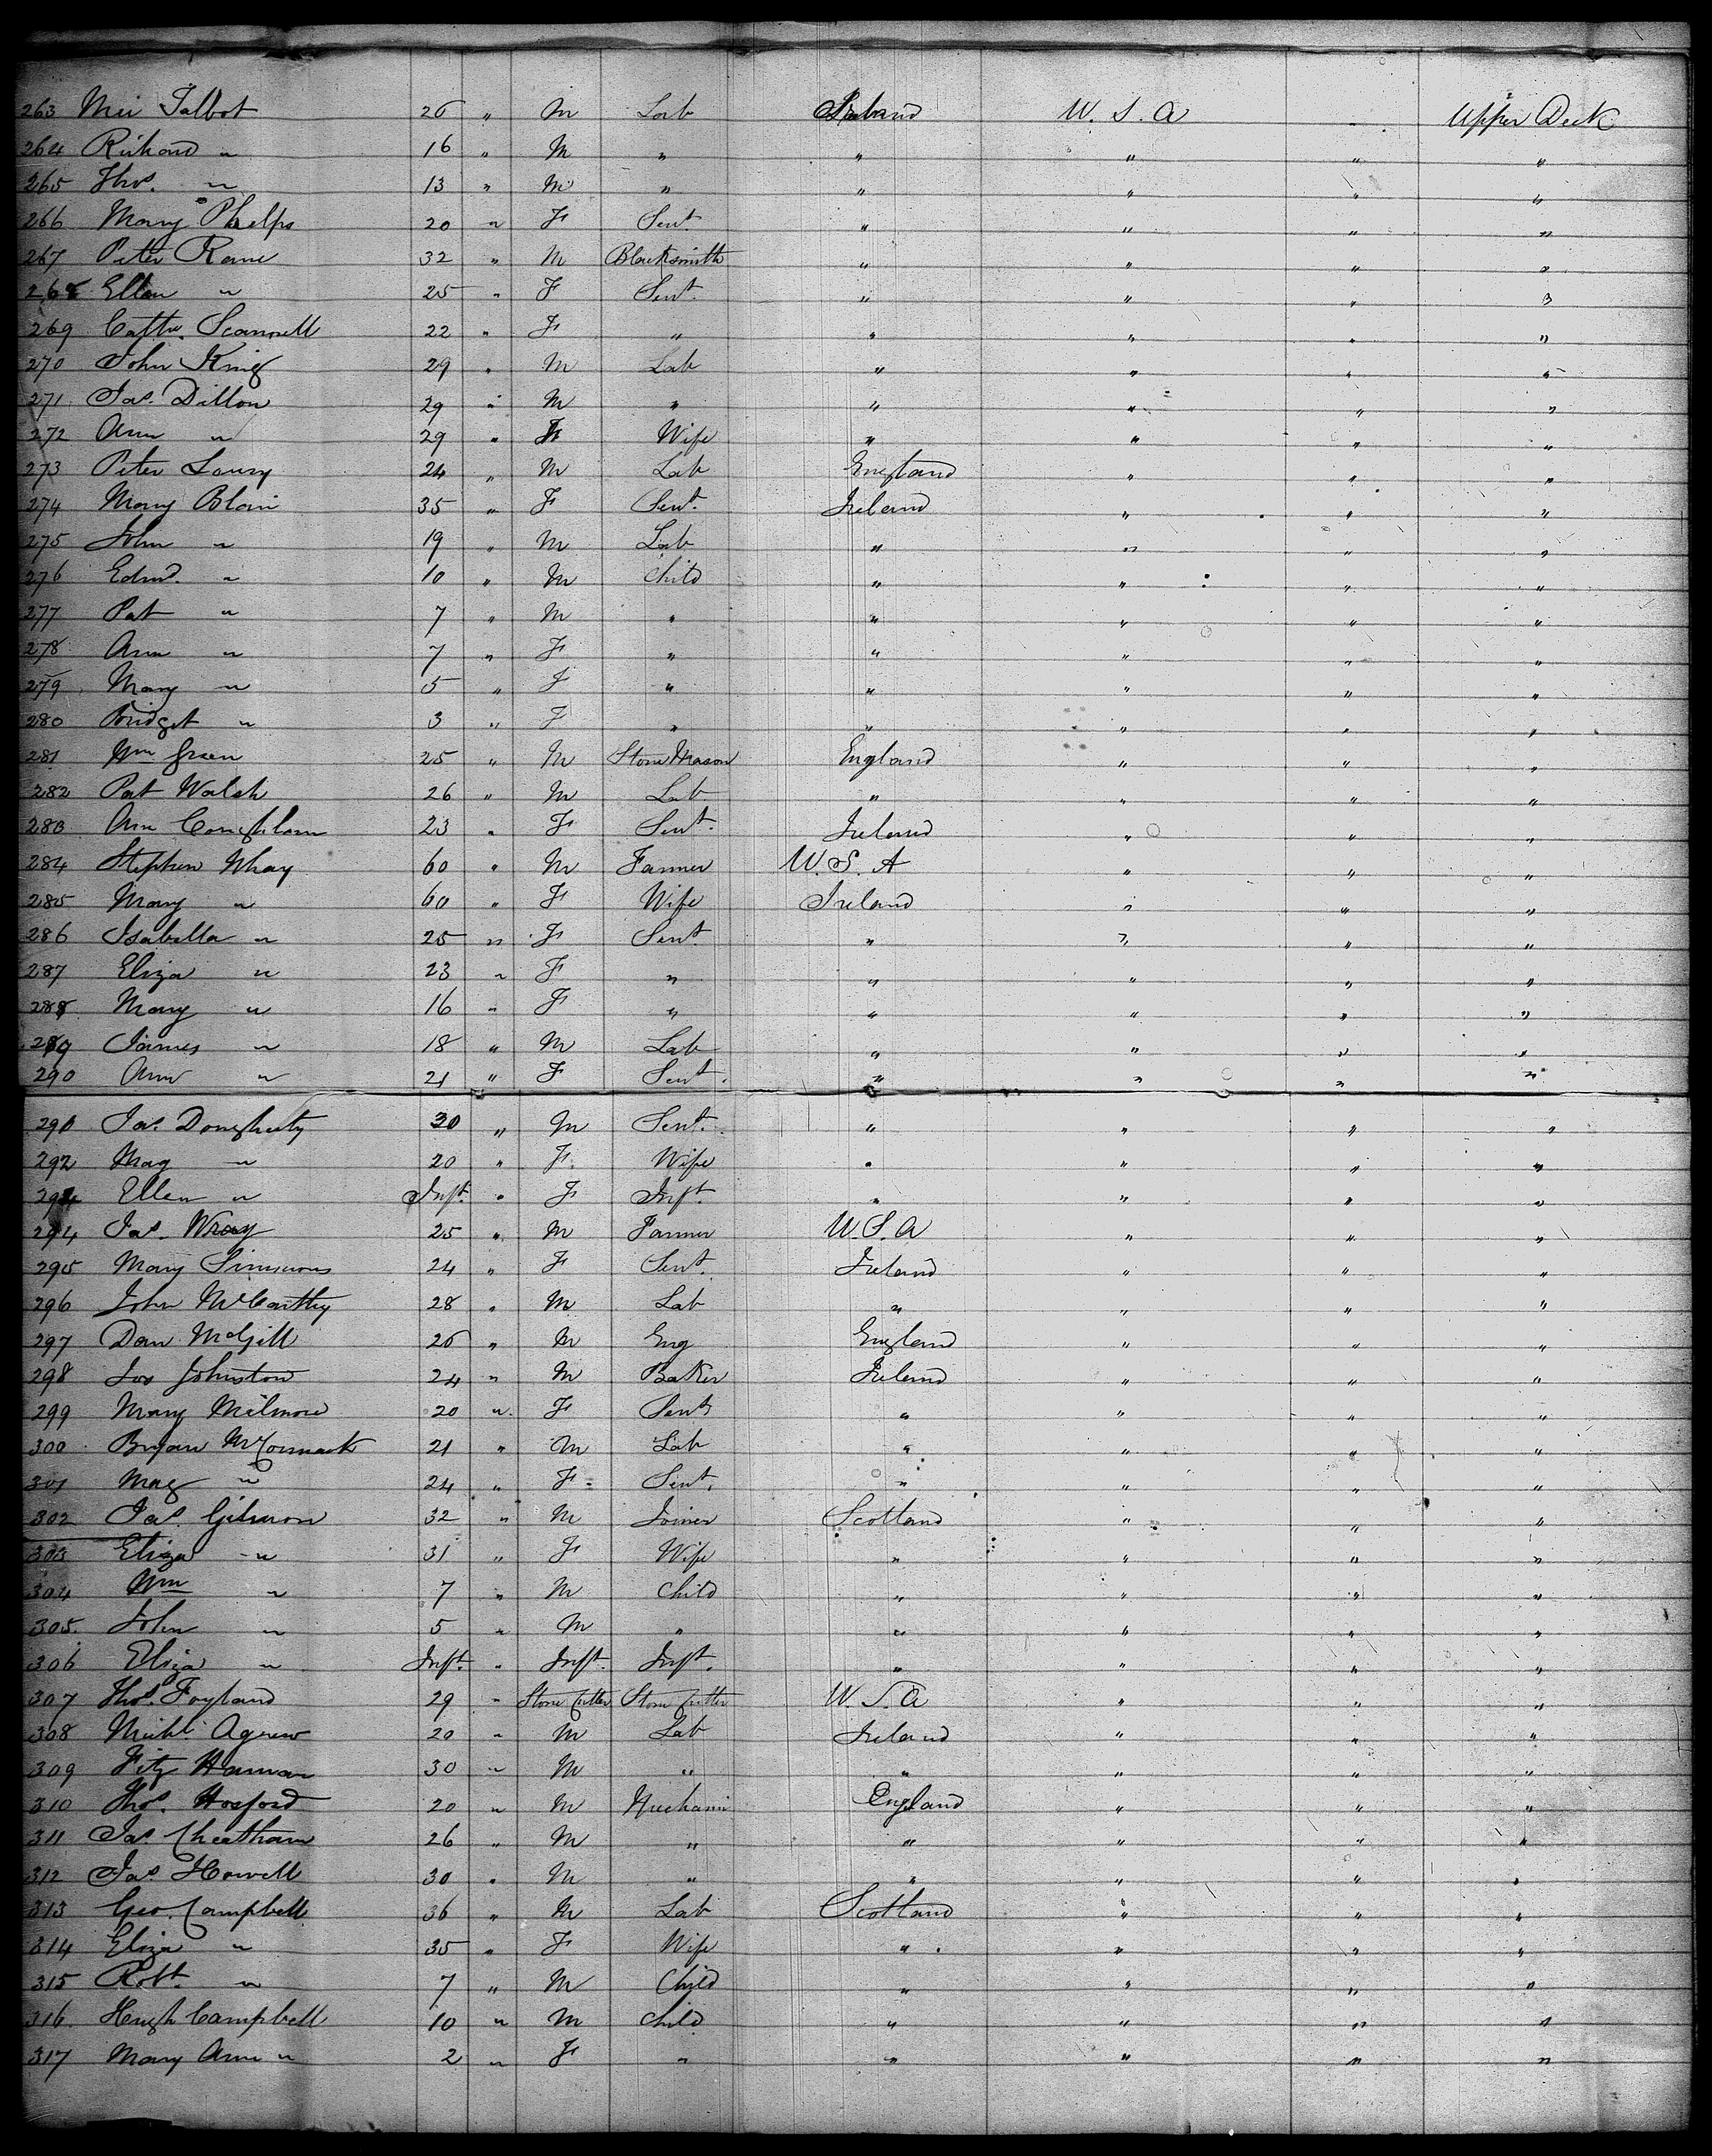 263 Mic Talbot 26 " M Lab Ireland U.S.A " Upper Deck
264 Richard " 16 " M " " " " "
265 Thos. " 13 " M " " " " "
266 Mary Phelps 20 " F Sert. " " " "
267 Peter Rane 32 " M Blacksmith " " " "
268 Ellen " 25 " F Sert. " " " "
269 Cathe. Scannell 22 " F " " " " "
270 John King 29 " M Lab " " " "
271 Jas. Dillon 29 " M " " " " "
272 Ann " 29 " F Wife " " " "
273 Peter Lowry 24 " M Lab England " " "
274 Mary Blain 35 " F Sert. Ireland " " "
275 John " 19 " M Lab " " " "
276 Edmd. " 10 " M Child " " " "
277 Pat " 7 " M " " " " "
278 Ann " 7 " F " " " " "
279 Mary " 5 " F " " " " "
280 Bridget " 3 " F " " " " "
281 Wm Green 25 " M Stone Mason England " " "
282 Pat Walsh 26 " M Lab " " " "
283 Ann Coughlan 23 " F Sert. Ireland " " "
284 Stephen Whay 60 " M Farmer U.S.A " " "
285 Mary " 60 " F Wife Ireland " " "
286 Isabella " 25 " F Sert. " " " "
287 Eliza " 23 " F " " " " "
288 Mary " 16 " F " " " " "
289 James " 18 " M Lab " " " "
290 Ann " 21 " F Sert. " " " "
291 Jas. Dougherty 30 " M Sert. " " " "
292 Mag " 20 " F Wife " " " "
Ellen " Inft. " F Inft. " " " "
294 Jas. Wray 25 " M Farmer U.S.A " " "
295 Mary Simmons 24 " F Sert. Ireland " " "
296 John McCarthy 28 " M Lab " " " "
297 Dan McGill 26 " M Eng England " " "
298 Jos Johnston 24 " M Baker Ireland " " "
299 Mary Milmore 20 " F Sert " " " "
300 Bryan McCormack 21 " M Lab " " " "
301 Mag " 24 " F Sert. " " " "
302 Jas. Gilmon 32 " M Joiner Scotland " " "
303 Eliza " 31 " F Wife " " " "
304 Wm " 7 " M Child " " " "
305 John " 5 " M " " " " "
306 Eliza " Inft. " Inft. Inft. " " " "
307 Thos. Foyland 29 " Stone Cutter Stone Cutter U.S.A " " "
308 Michl. Agnew 20 " M Lab Ireland " " "
309 Fitz Hannan 30 " M " " " " "
310 Thos. Hosford 20 " M Mechanic England " " "
311 Jas Cheatham 26 " M " " " " "
312 Jas. Howell 30 " M " " " " "
313 Geo. Campbell 36 " M Lab Scotland " " "
314 Eliza " 35 " F Wife " " " "
315 Robt. " 7 " M Child " " " "
316 Hugh Campbell 10 " M Child " " " "
317 Mary Ann " 2 " F " " " " "